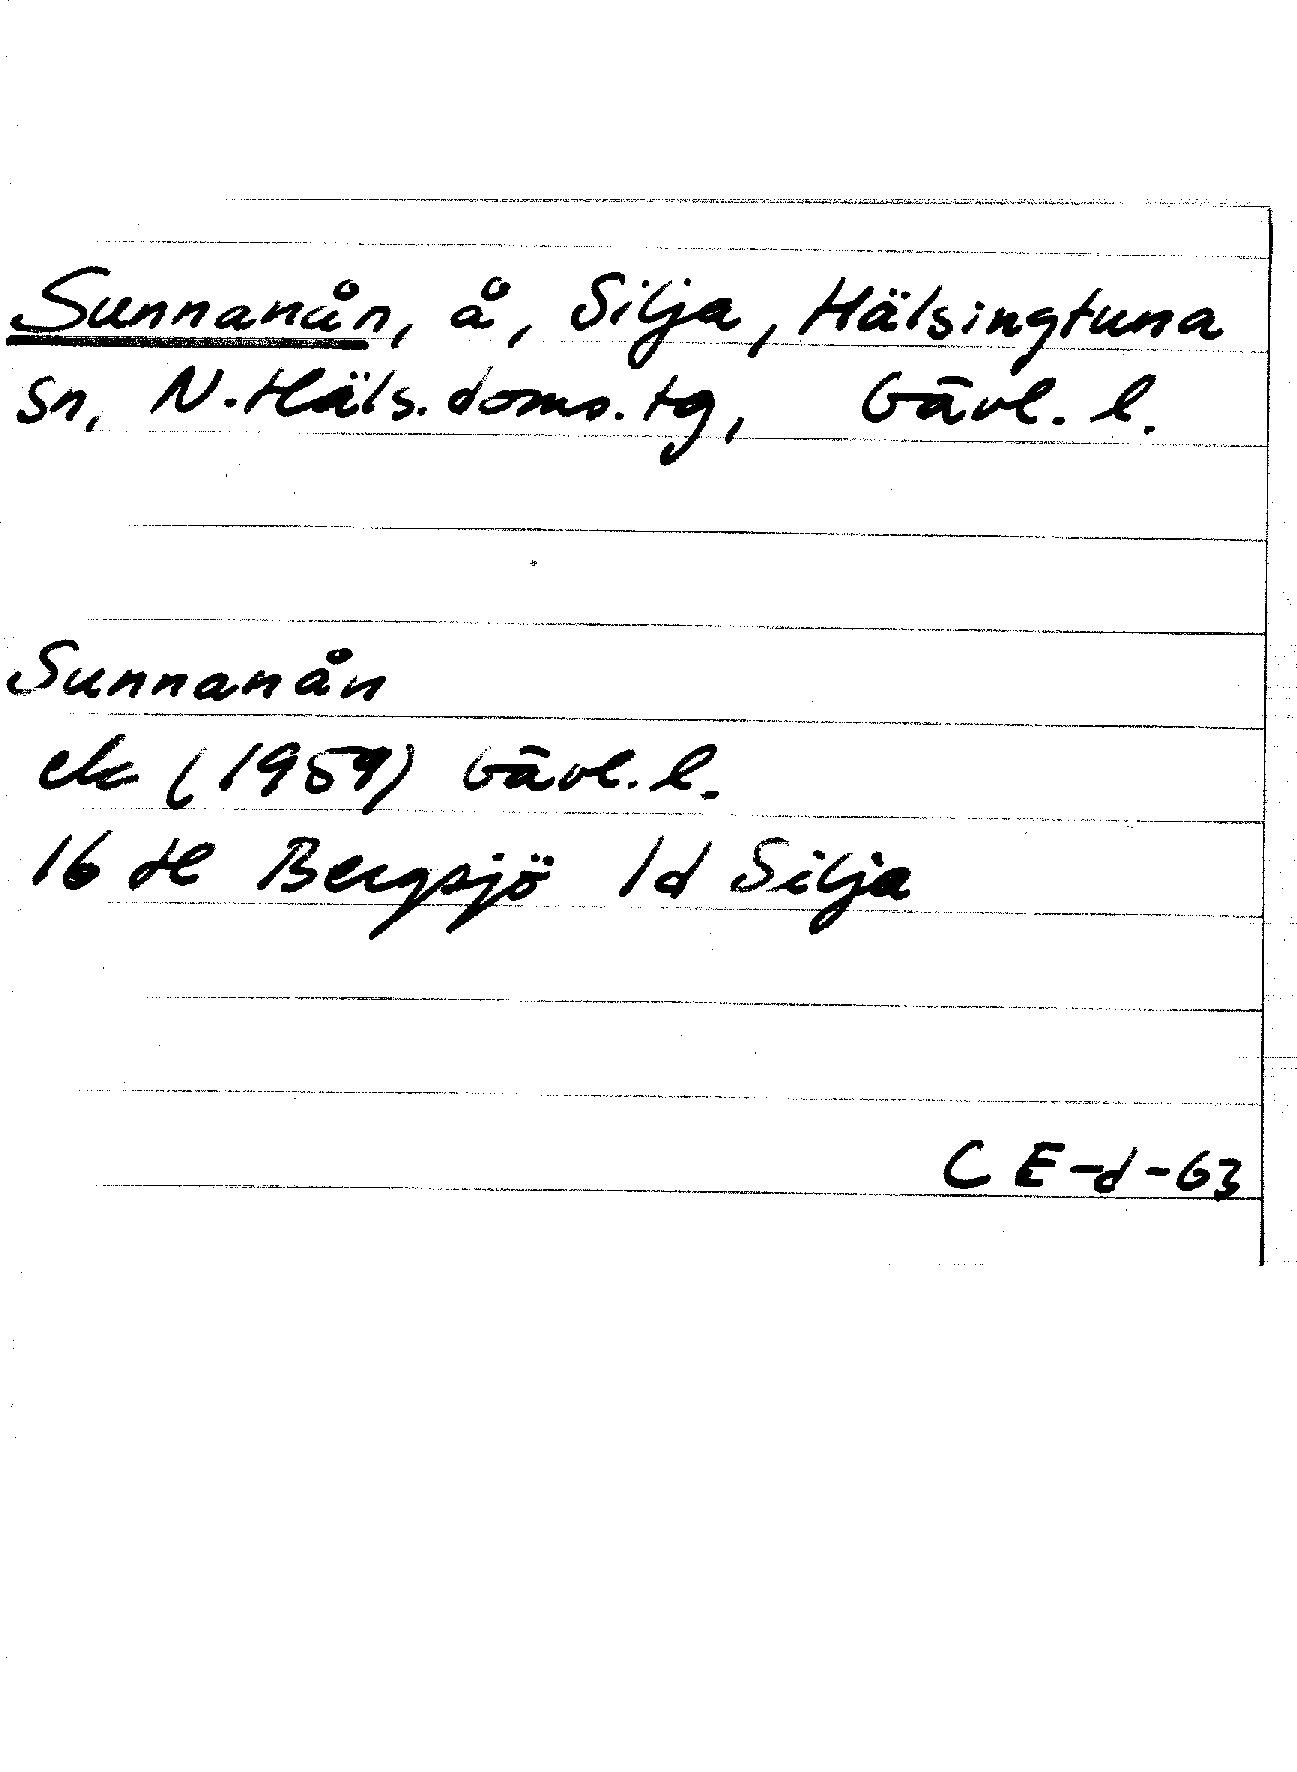 Sunnanån, å, Silja, Hälsingtuna
sn, N. Häls. doms. tg, Gävl. l.
Sunnanån
ek (1959) Gävl. l.
16 H Bergsjö 1d Silja
C E-d-63